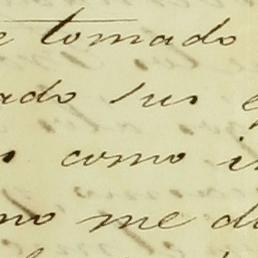 e tomado
ado sus
s como i
no me d